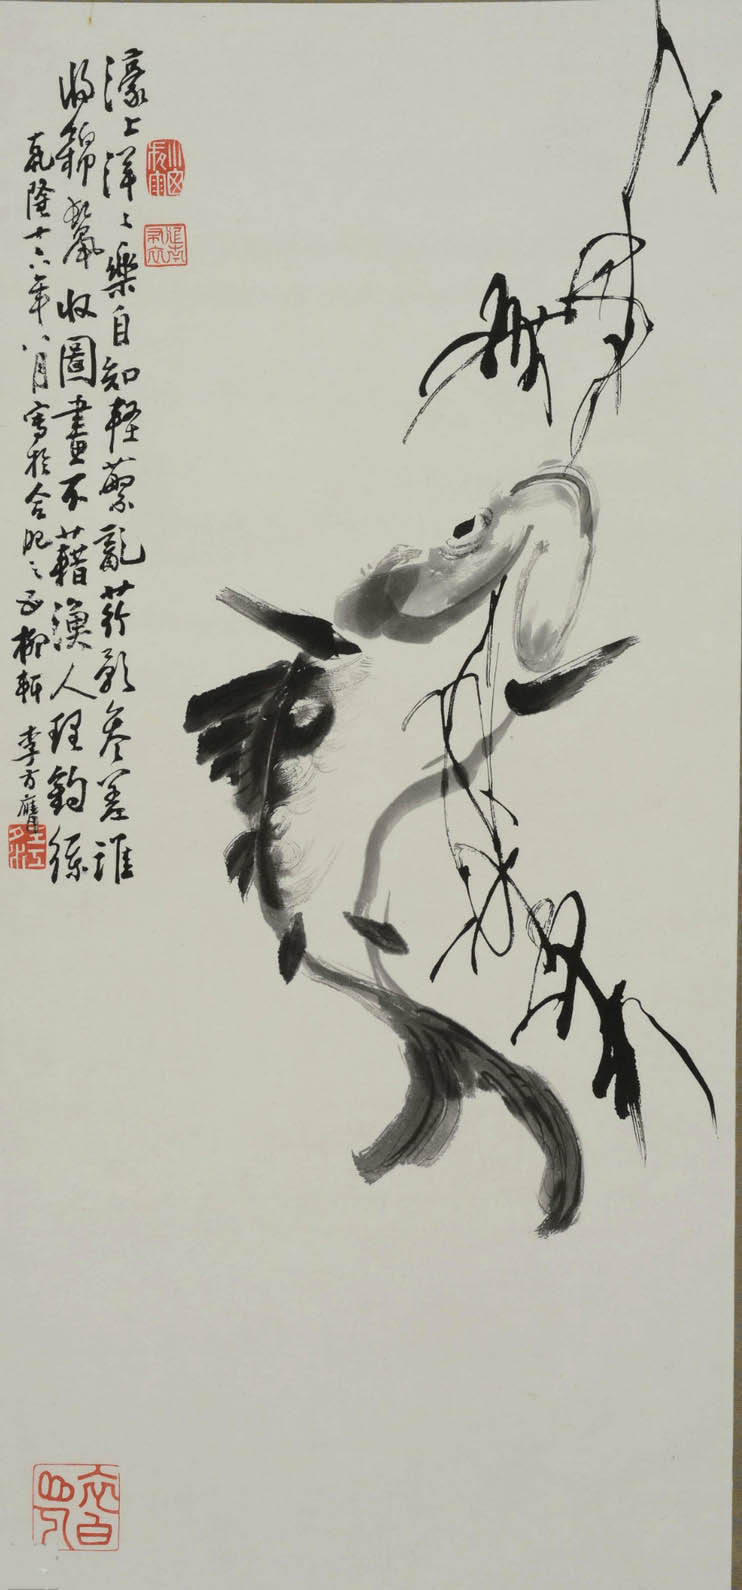 濠上洋〻樂自知輕蘩亂荇影參差誰
將錦鬣收圖畫不藉漁人理釣絲
乾隆廿六年八月寫於合肥之五柳軒 李方膺